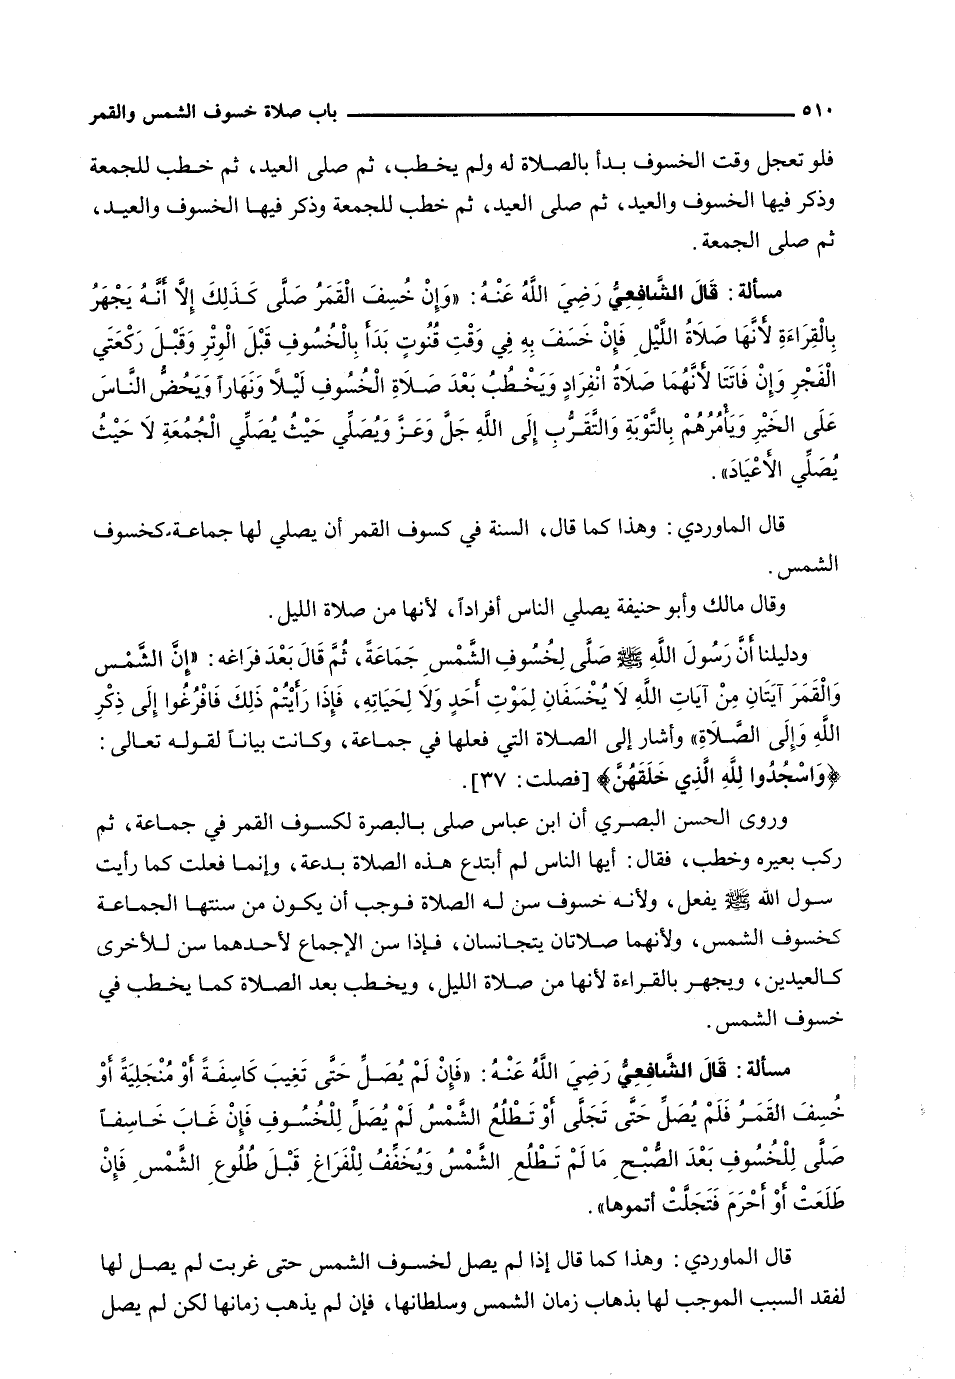 ٥١٠ باب صلاة خسوف الشمس والقمر
فلو تعجل وقت الخسوف بدأ بالصلاة له ولم يخطب، ثم صلى العيد، ثم خطب للجمعة
وذكر فيها الخسوف والعيد، ثم صلى العيد، ثم خطب للجمعة وذكر فيها الخسوف والعيد،
ثم صلى الجمعة.
مسألة: قَالَ الشَّافِعِيُّ رَضِيَ اللَّهُ عَنْهُ: «وَإِنْ خُسِفَ الْقَمَرُ صَلَّى كَذَلِكَ إِلَّا أَنَّهُ يَجْهَرُ
بِالْقِرَاءَةِ لأَنَّهَا صَلَاةُ اللَّيْلِ فَإِنْ خَسَفَ بِهِ فِي وَقْتِ قُنُوتٍ بَدَأَ بِالْخُسُوفِ قَبْلَ الْوِتْرِ وَقَبْلَ رَكْعَتَي
الْفَجْرِ وَإِنْ فَاتَتَا لأَنَّهُمَا صَلَاةُ انْفِرَادٍ وَيَخْطُبُ بَعْدَ صَلَاةِ الْخُسُوفِ لَيْلاً وَنَهَاراً وَيَحُضُّ النَّاسَ
عَلَى الخَيْرِ وَيَأْمُرُهُمْ بِالتَّوْبَةِ وَالتَّقَرُّبِ إِلَى اللَّهِ جَلَّ وَعَزَّ وَيُصَلِّي حَيْثُ يُصَلِّي الْجُمُعَةِ لَا حَيْثُ
يُصَلِّي الأَعْيَادَ».
قال الماوردي: وهذا كما قال، السنة في كسوف القمر أن يصلي لها جماعة كخسوف
الشمس.
وقال مالك وأبو حنيفة يصلي الناس أفراداً، لأنها من صلاة الليل.
ودليلنا أَنَّ رَسُولَ اللَّهِ ﷺ صَلَّى لِخُسُوفِ الشَّمْسِ جَمَاعَةً، ثُمَّ قَالَ بَعْدَ فَرَاغه: «إِنَّ الشَّمْس
وَالْقَمَرَ آيَتَانِ مِنْ آيَاتِ اللَّهِ لَا يُخْسَفَانِ لِمَوْتِ أَحَدٍ وَلَا لِحَيَاتِهِ، فَإِذَا رَأَيْتُمْ ذَلِكَ فَافْرُغُوا إِلَى ذِكْرِ
اللَّهِ وَإِلَى الصَّلَاةِ» وأشار إلى الصلاة التي فعلها في جماعة، وكانت بياناً لقوله تعالى:
﴿وَاسْجُدُوا لِلَّهِ الَّذِي خَلَقَهُنَّ﴾ [فصلت: ٣٧].
وروى الحسن البصري أن ابن عباس صلى بالبصرة لكسوف القمر في جماعة، ثم
ركب بعيره وخطب، فقال: أيها الناس لم أبتدع هذه الصلاة بدعة، وإنما فعلت كما رأيت
سول الله ﷺ يفعل، ولأنه خسوف سن له الصلاة فوجب أن يكون من سنتها الجماعة
كخسوف الشمس، ولأنهما صلاتان يتجانسان، فإذا سن الإجماع لأحدهما سن للأخرى
كالعيدين، ويجهر بالقراءة لأنها من صلاة الليل، ويخطب بعد الصلاة كما يخطب في
خسوف الشمس.
مسألة: قَالَ الشَّافِعِيُّ رَضِيَ اللَّهُ عَنْهُ: «فَإِنْ لَمْ يُصَلِّ حَتَّى تَغِيبَ كَاسِفَةً أَوْ مُنْجَلِيَةً أَوْ
خُسِفَ القَمَرُ فَلَمْ يُصَلِّ حَتَّى تَجَلَّى أَوْ تَطْلُعَ الشَّمْسُ لَمْ يُصَلِّ لِلْخُسُوفِ فَإِنْ غَابَ خَاسِفاً
صَلَّى لِلْخُسُوفِ بَعْدَ الصُّبْحِ مَا لَمْ تَطْلُعِ الشَّمْسُ وَيُخَفِّفُ لِلْفَرَاغِ قَبْلَ طُلُوعِ الشَّمْسِ فَإِنْ
طَلَعَتْ أَوْ أَحْرَمَ فَتَجَلَّتْ أتموها».
قال الماوردي: وهذا كما قال إذا لم يصل لخسوف الشمس حتى غربت لم يصل لها
لفقد السبب الموجب لها بذهاب زمان الشمس وسلطانها، فإن لم يذهب زمانها لكن لم يصل